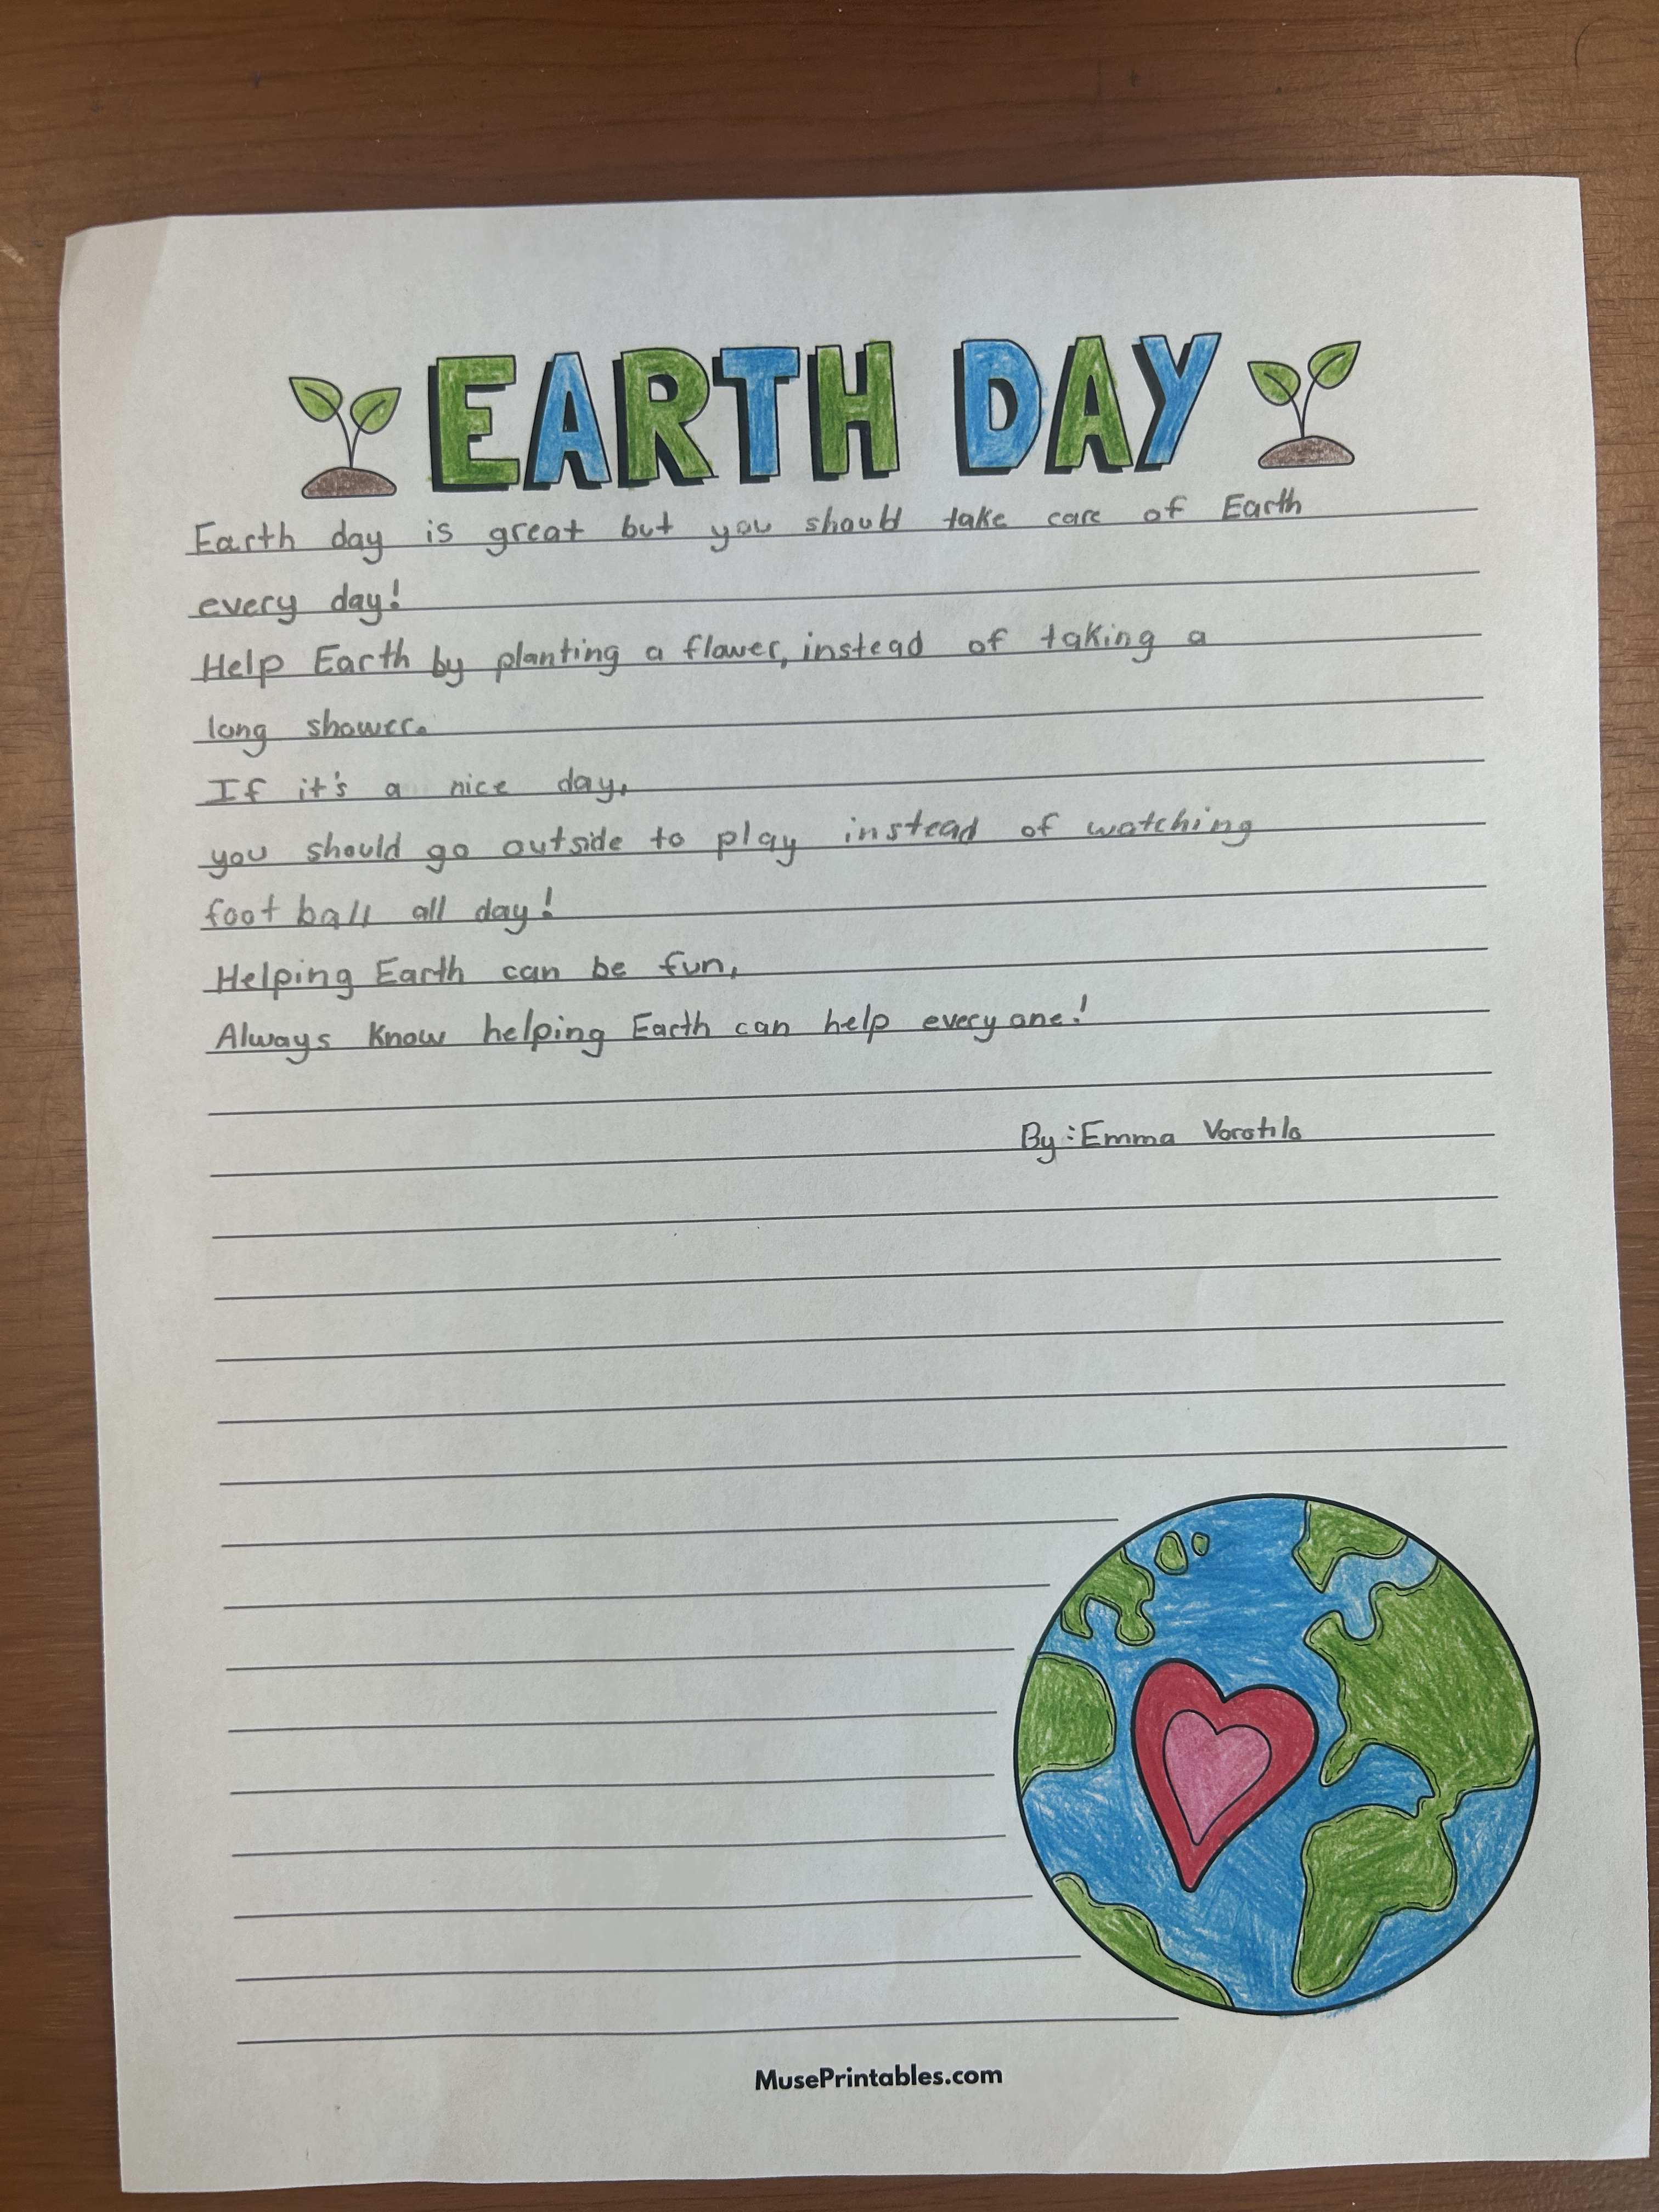 EARTH DAY
Earth day is great but you should take care of Earth
every day!
Help Earth by planting a flower, instead of taking a
long shower.
If it's a nice day,
you should go outside to play instead of watching
foot ball all day!
Helping Earth can be fun,
Always Know helping Earth can help every one!
By: Emma Vorotila
MusePrintables.com